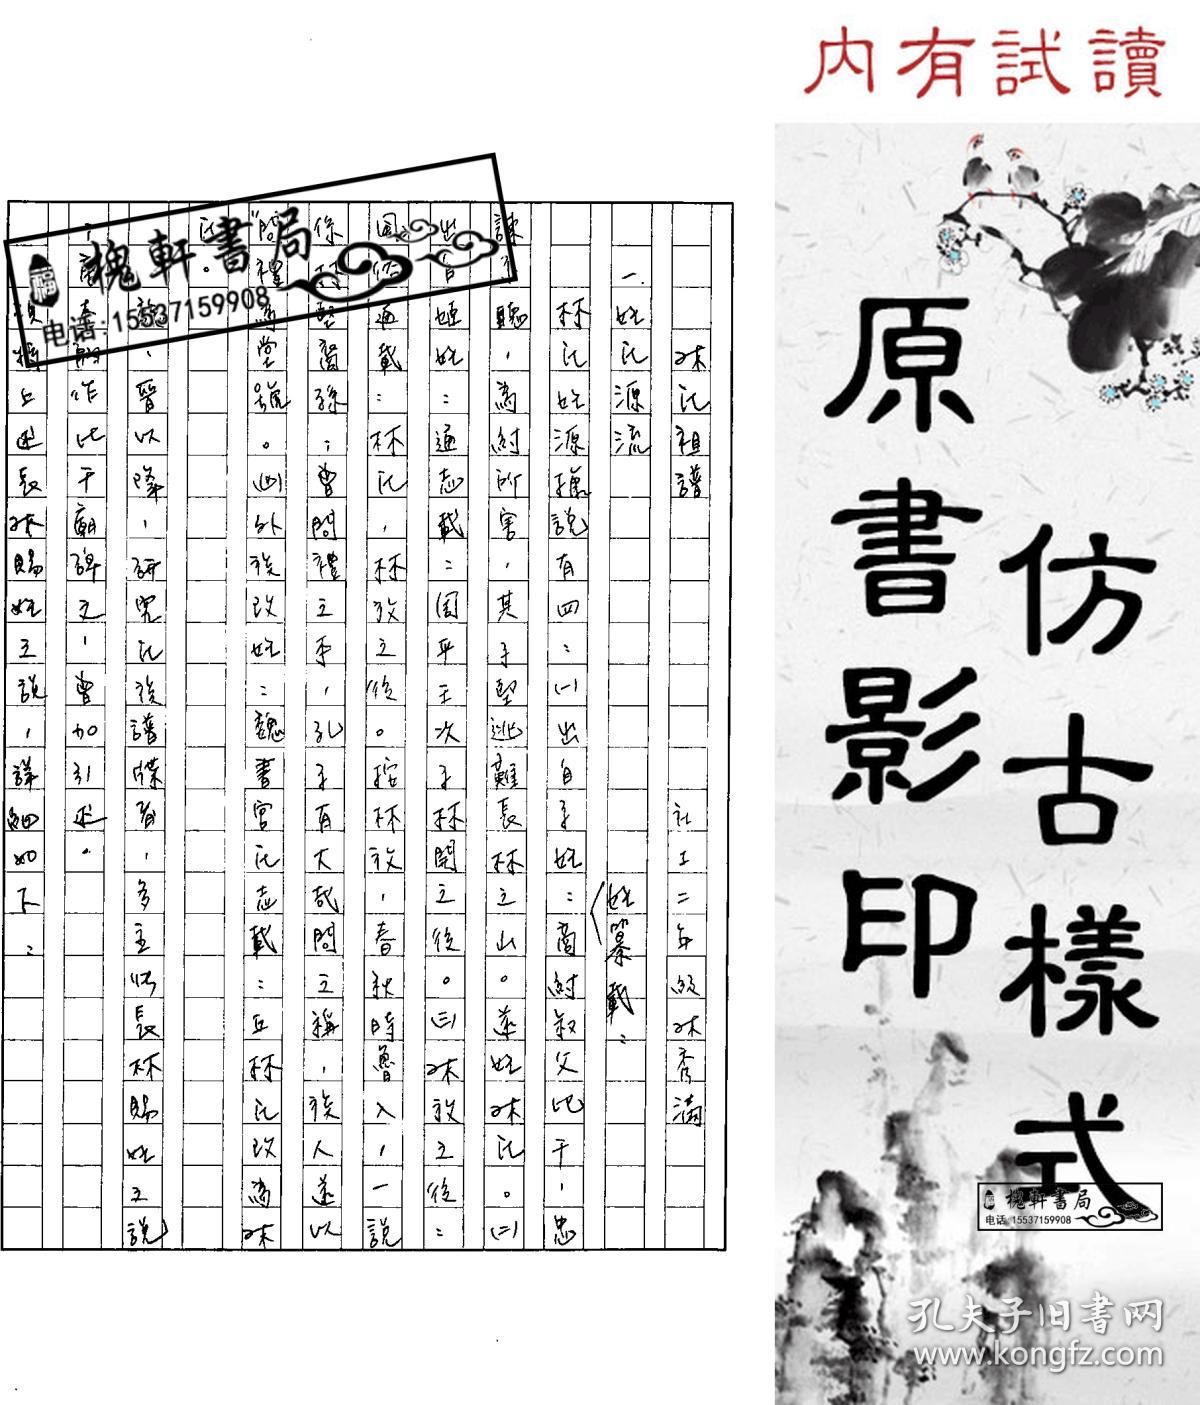 內有試讀
原書影印
仿古樣式
林氏祖譜　社工二年級林秀滿
一.姓氏源流　〈姓纂載:
林氏姓源據說有四:(一)出自子姓:商紂叔父比干,忠
諫不聽,為紂所害,其子堅逃難長林之山。遂姓林氏。(二)
出自姬姓:通志載:周平王次子林開之後。(三)林放之後:
風俗通載:林氏,林放之後。按林放,春秋時魯人,一說
係林堅裔孫;曾問禮之本,孔子有大哉問之稱,族人遂以
"問禮"為堂號。(四)外族改姓:魏書官氏志載:丘林氏改為林
氏。
,晉以降,研究氏族譜牒者,多主張長林賜姓之說
作比干廟碑文,曾加引述。
述長林賜姓之說,詳細如下:
福 槐軒書局
电话:15537159908
槐軒書局
电话:15537159908
孔夫子旧书网
www.kongfz.com